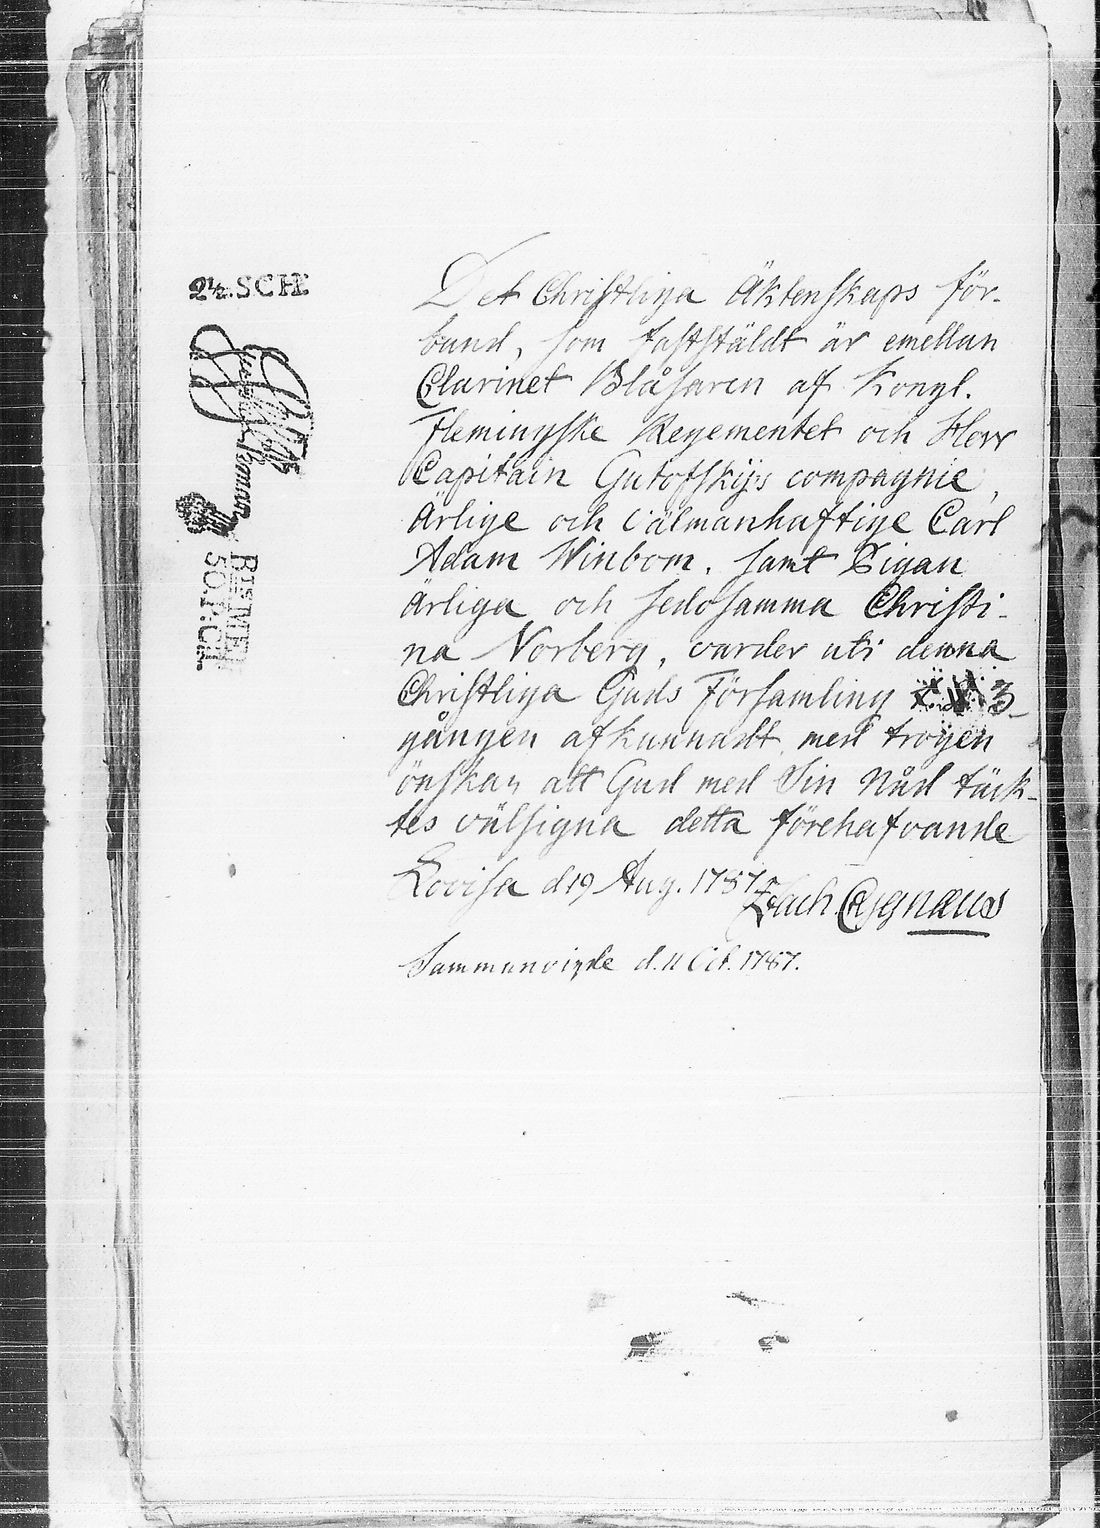 2½.SCH.
BEVIL
50.P.Ct.
Det Christliga Äktenskaps för-
bund, som fastställdt är emellan
Clarinet Blåsaren af Kongl.
Flemingske Regementet och Herr
Capitain Gutofskijs compagnie,
Ärlige och Välmanhaftige Carl
Adam Winbom, samt Pigan
Ärliga och sedosamma Christi-
na Norberg, varder uti denna
Christliga Guds Församling 3
gången afkunnadt, med trogen
önskan att Gud med Sin Nåd täck-
tes välsigna detta förehafvande
Lovisa d 19 Aug. 1787.
Zach. Cygnæus
Sammanvigde d. 11 Oct. 1787.